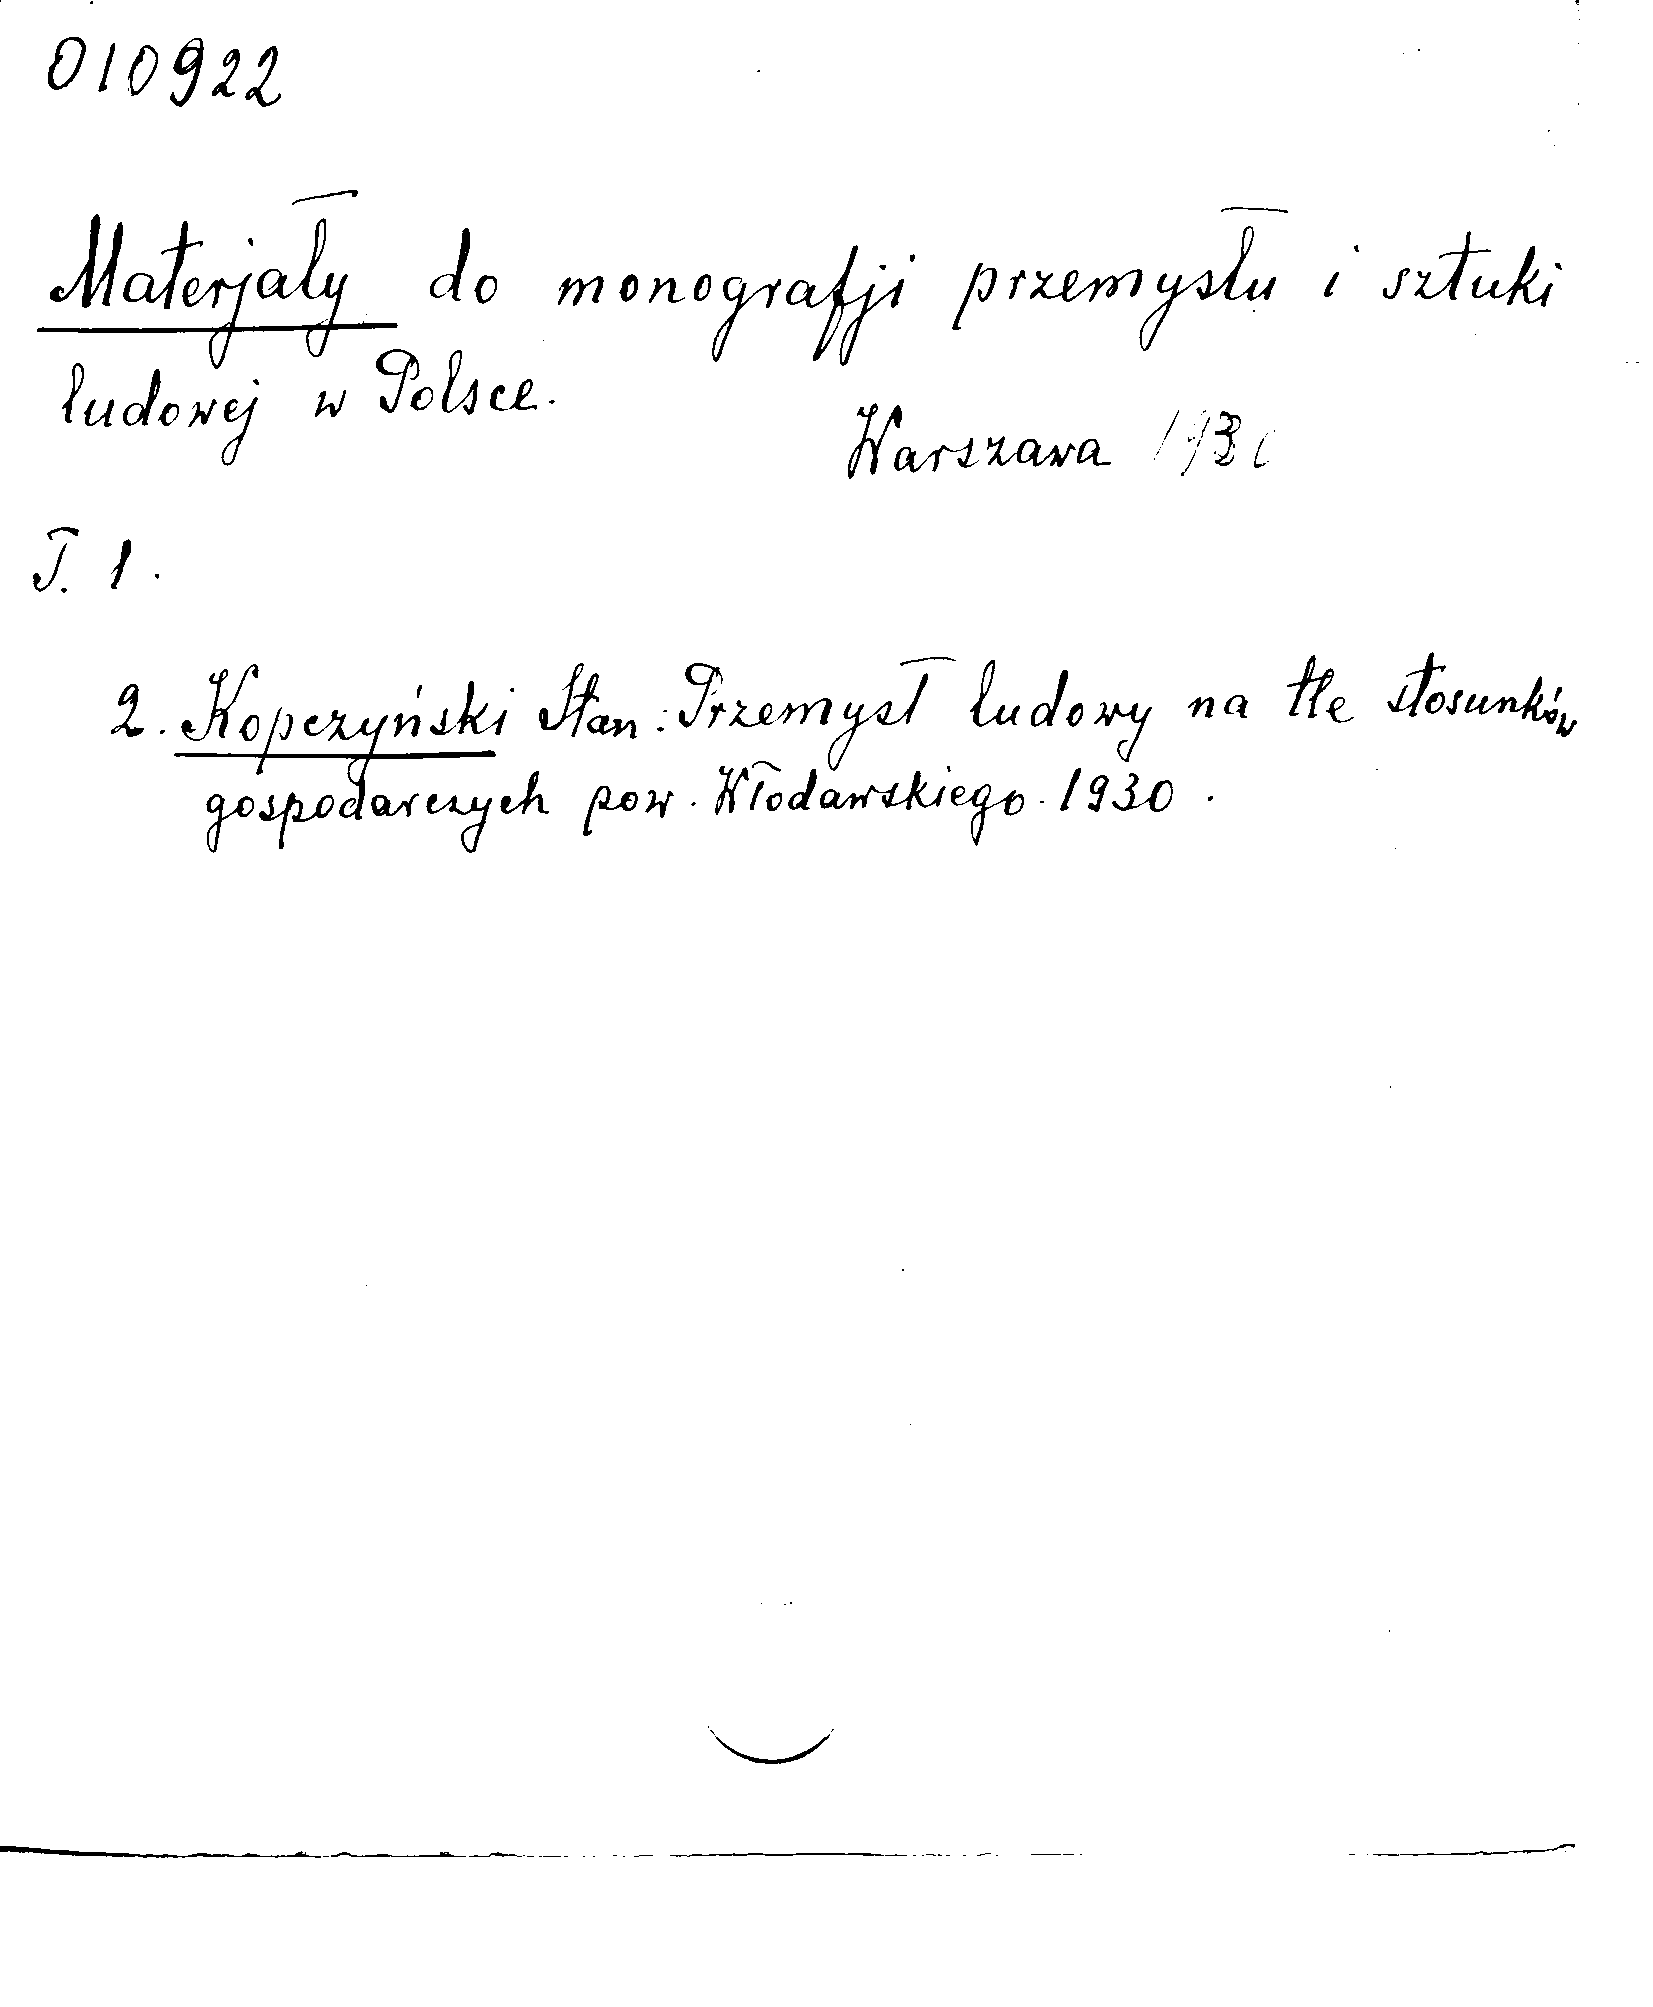 010922
Materjały do monografji przemysłu i sztuki
ludowej w Polsce.
Warszawa
T. 1.
2. Kopczyński Stan: Przemysł ludowy na tle stosunków
gospodarczych pow. Włodawskiego. 1930.